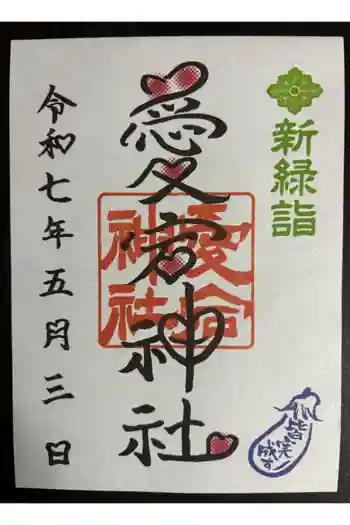 新緑詣
愛宕神社
愛宕
神社
令和七年五月三日
皆実
成す